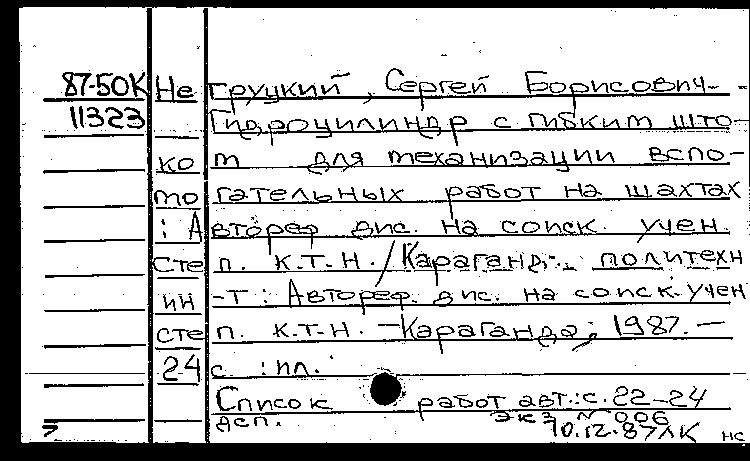 87-50К Не труцкий, Сергей Борисович.-
11323 Гидроцилиндр с гибким што-
ко т для механизации вспо-
то гательных работ на шахтах
: А втореф дис. на соиск. учен.
сте п. к.т.н. / Караганд. политехн
ин -т: Автореф. дис. на соиск. учен
сте п. к.т.н. - Караганда, 1987. -
24 с. : ил.
Список работ авт.: с. 22-24
дсп. экз № 006
10.12.87 ЛК нс